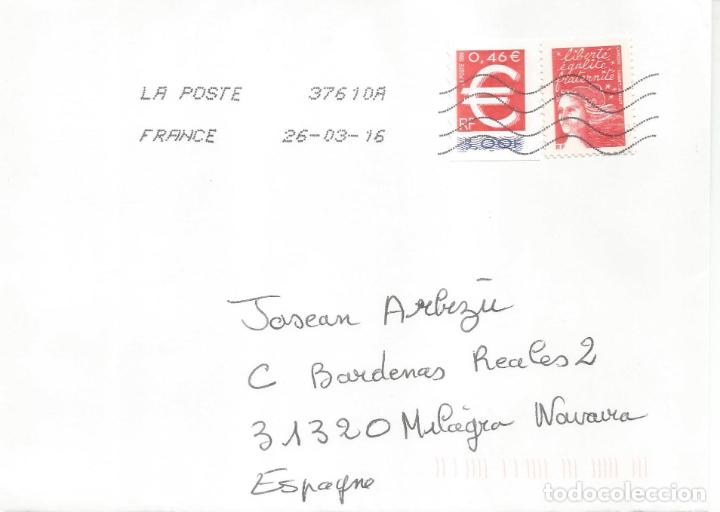 LA POSTE 37610A
FRANCE 26-03-16
LA POSTE 1999
0,46€
€
RF
3,00F
liberté
égalité
fraternité
RF
Josean Arbezù
C Bardenas Reales 2
31320 Milàgra Navarra
Espagne
todocoleccion